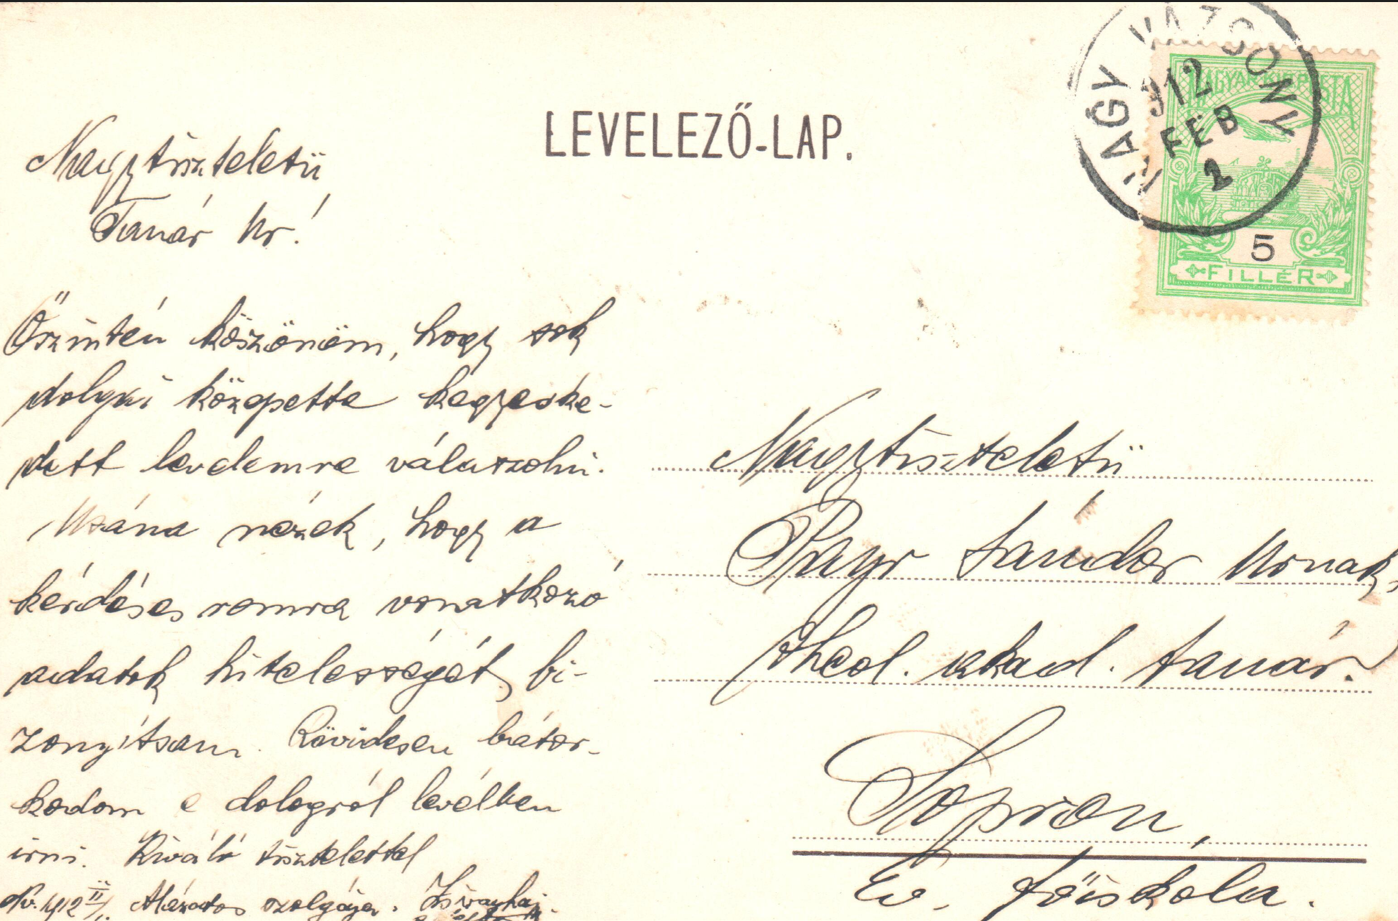 LEVELEZŐ-LAP.
NAGY VÁZSONY
912
FEB
1
MAGYAR KIR. POSTA
5
FILLÉR
Nagytiszteletü
Tanár Ur!
Őszintén köszönöm, hogy sok
dolgai közepette kegyeske-
dett levelemre válaszolni.
Utána nézek, hogy a
kérdéses romra vonatkozó
adatok hitelességét bi-
zonyítsam. Rövidesen bátor-
kodom e dologról levélben
irni. Kiváló tisztelettel
Nv. 912 II/1. Alázatos szolgája.
Nagytiszteletü
Payr Sándor Urnak,
theol. akad. tanár.
Sopron,
Ev. főiskola.